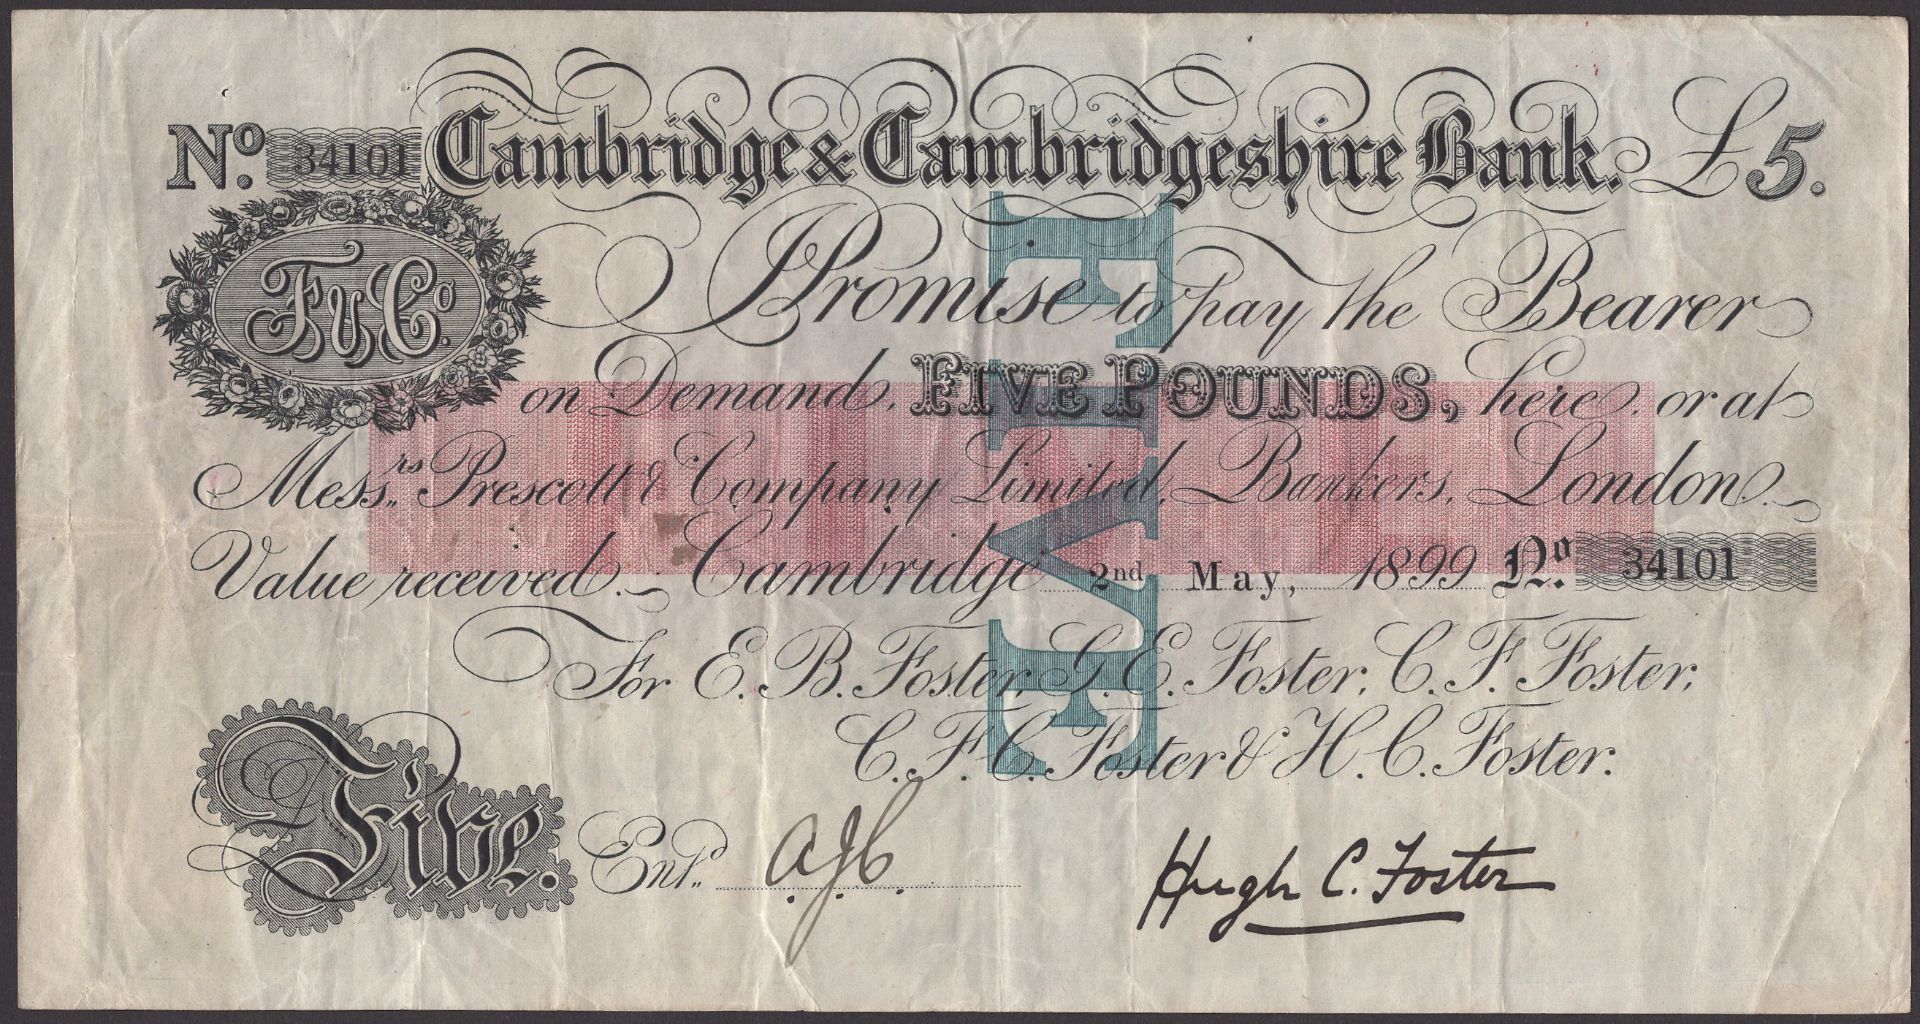 No. 34101 Cambridge & Cambridgeshire Bank. £5.
F & Co.
I Promise to pay the Bearer
on Demand, FIVE POUNDS, here or at
Messrs. Prescott & Company Limited, Bankers, London.
Value received. Cambridge 2nd May, 1899 No. 34101
For E. B. Foster, G. E. Foster, C. F. Foster,
C. F. C. Foster & H. C. Foster.
£ Five.
Entd. A.J.C.
Hugh C. Foster
FIVE